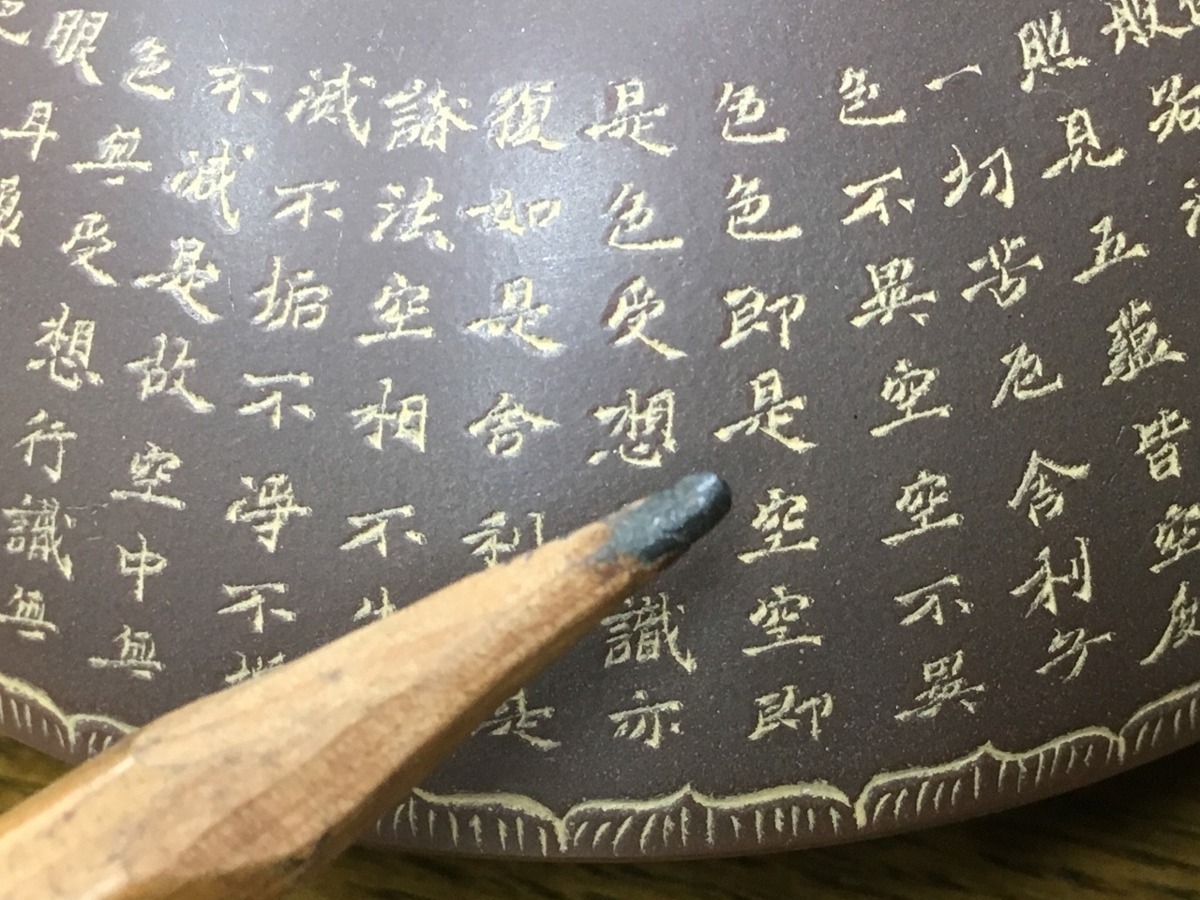 般
照見五蘊皆空度
一切苦厄舍利子
色不異空空不異
色色即是空空即
是色受想識亦
復如是舍利是
諸法空相不生
滅不垢不淨不增
不減是故空中無
色無受想行識無
眼耳